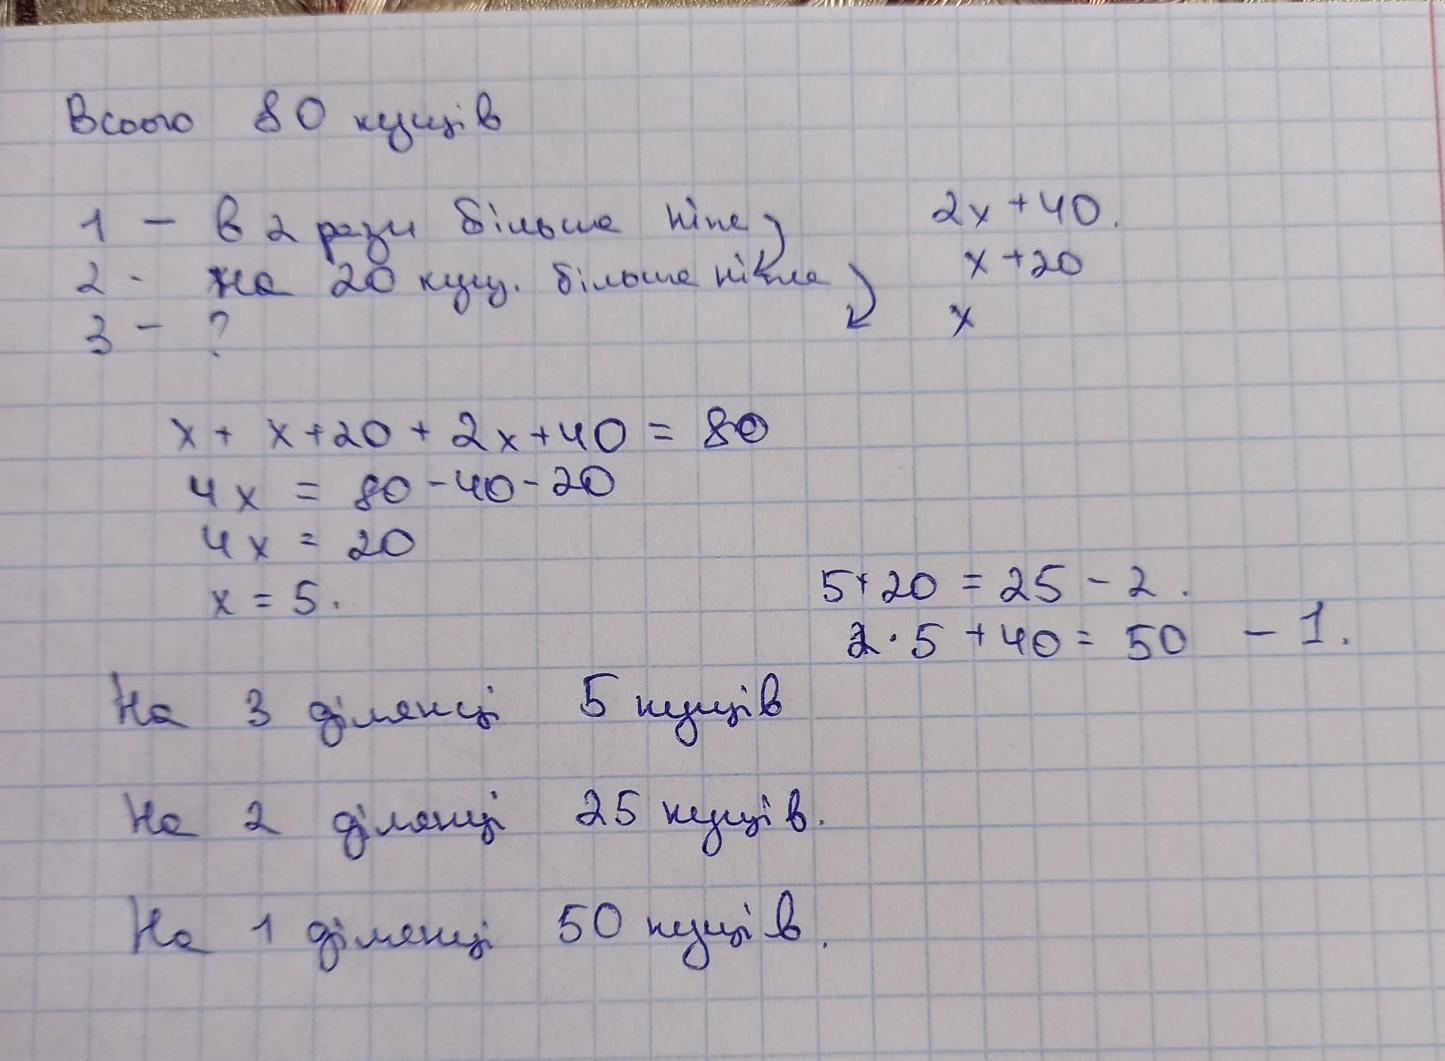 Всього 80 кущів
1 - в 2 рази більше ніж 2x+40.
2 - на 20 кущ. більше ніж на x+20
3 - ? x
x + x+20 + 2x+40 = 80
4x = 80-40-20
4x = 20
x = 5.
5+20 = 25 - 2.
2·5 + 40 = 50 - 1.
На 3 ділянці 5 кущів
На 2 ділянці 25 кущів.
На 1 ділянці 50 кущів.